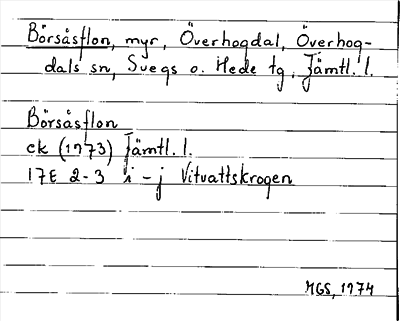 Börsåsflon, myr, Överhogdal, Överhog-
dals sn, Svegs o. Hede tg, Jämtl. l.
Börsåsflon
ek (1973) Jämtl. l.
17E 2-3 i-j Vitvattskrogen
MGS, 1974